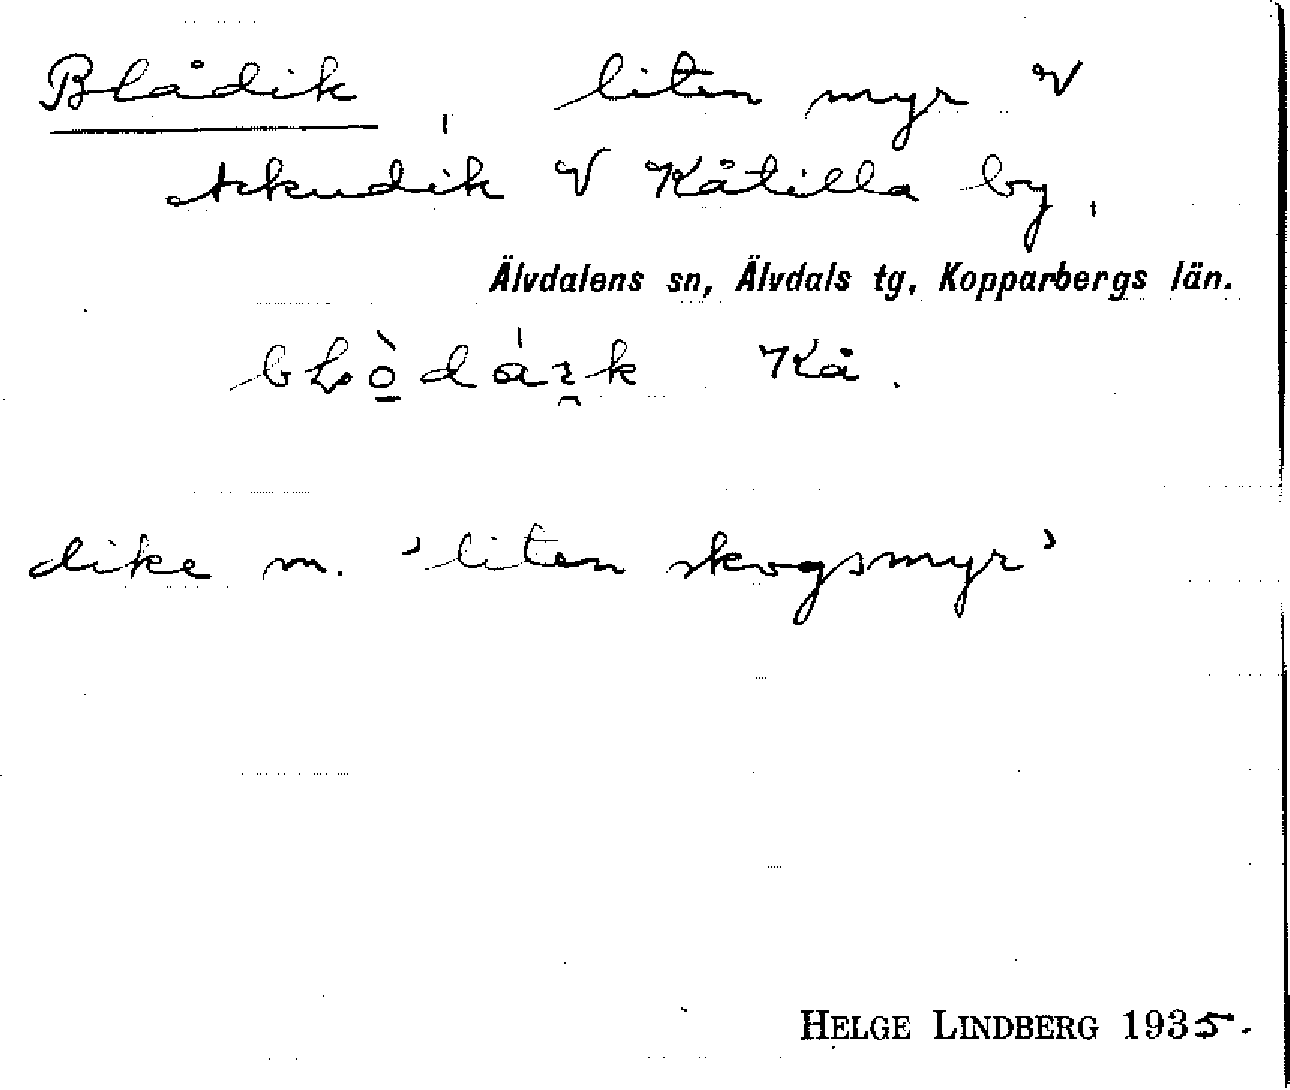 Blådik, liten myr V
Ackudik V Kåtilla by,
Älvdalens sn, Älvdals tg, Kopparbergs län.
Kå.
dike m. 'liten skogsmyr'
HELGE LINDBERG 1935.